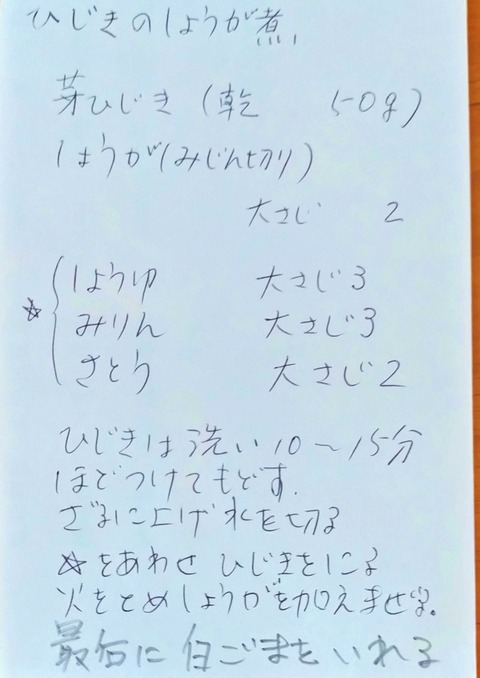 ひじきのしょうが煮
芽ひじき(乾 50g)
しょうが(みじん切り)
大さじ 2
しょうゆ 大さじ3
☆ みりん 大さじ3
さとう 大さじ2
ひじきは洗い10〜15分
ほどつけてもどす.
ざるに上げ水を切る
☆をあわせ ひじきをにる
火をとめしょうがを加えませる。
最后に 白ごまをいれる